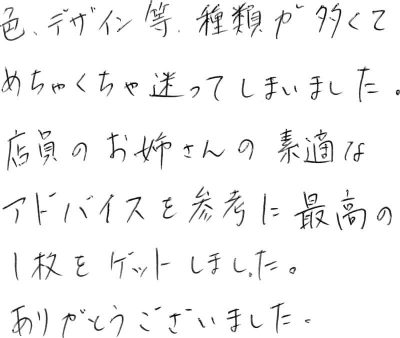 色、デザイン等、種類が多くて
めちゃくちゃ迷ってしまいました。
店員のお姉さんの素適な
アドバイスを参考に最高の
1枚をゲットしました。
ありがとうございました。